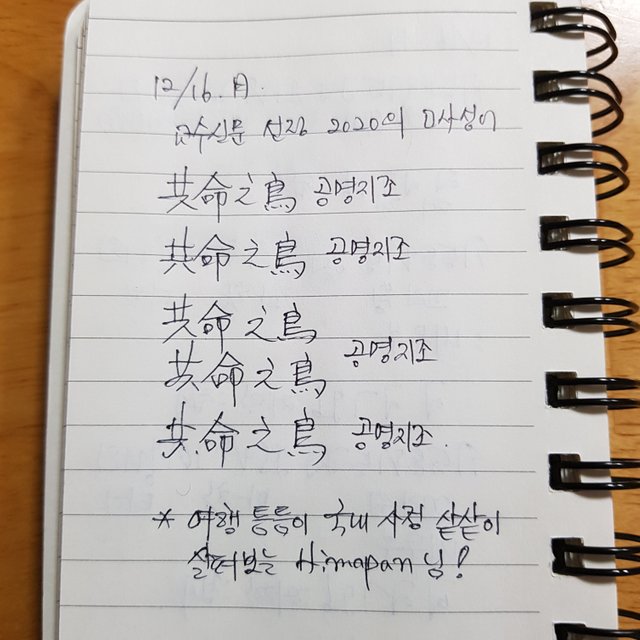 12/16. 月.
교수신문 선정 2020의 사성어
共命之鳥 공명지조
共命之鳥 공명지조
共命之鳥
共命之鳥 공명지조
共命之鳥 공명지조.
* 여행 틈틈이 국내 사정 샅샅이
살펴보는 Himapan 님!